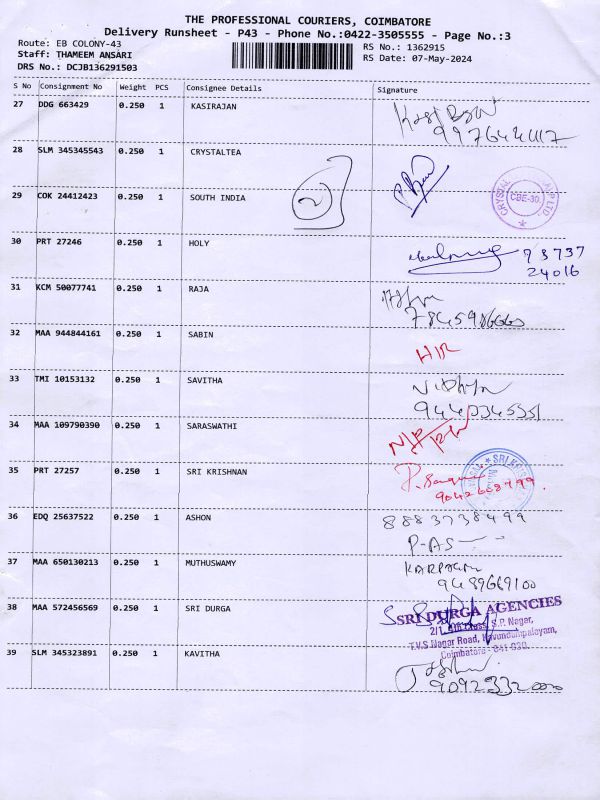 THE PROFESSIONAL COURIERS, COIMBATORE
Delivery Runsheet - P43 - Phone No.:0422-3505555 - Page No.:3
Route: EB COLONY-43
RS No.: 1362915
Staff: THAMEEM ANSARI
RS Date: 07-May-2024
DRS No.: DCJB136291503
S No Consignment No Weight PCS Consignee Details Signature
27 DDG 663429 0.250 1 KASIRAJAN
28 SLM 345345543 0.250 1 CRYSTALTEA
29 COK 24412423 0.250 1 SOUTH INDIA
CRYSTAL
CBE-30.
30 PRT 27246 0.250 1 HOLY
24016
31 KCM 50077741 0.250 1 RAJA
32 MAA 944844161 0.250 1 SABIN
33 TMI 10153132 0.250 1 SAVITHA
34 MAA 109790390 0.250 1 SARASWATHI
35 PRT 27257 0.250 1 SRI KRISHNAN
36 EDQ 25637522 0.250 1 ASHON
8883738499
37 MAA 650130213 0.250 1 MUTHUSWAMY
9489669100
38 MAA 572456569 0.250 1 SRI DURGA
SRI DURGA AGENCIES
S.P. Nagar,
T.V.S Nagar Road, Kavundampalayam,
Coimbatore - 641 030.
39 SLM 345323891 0.250 1 KAVITHA
9092332000